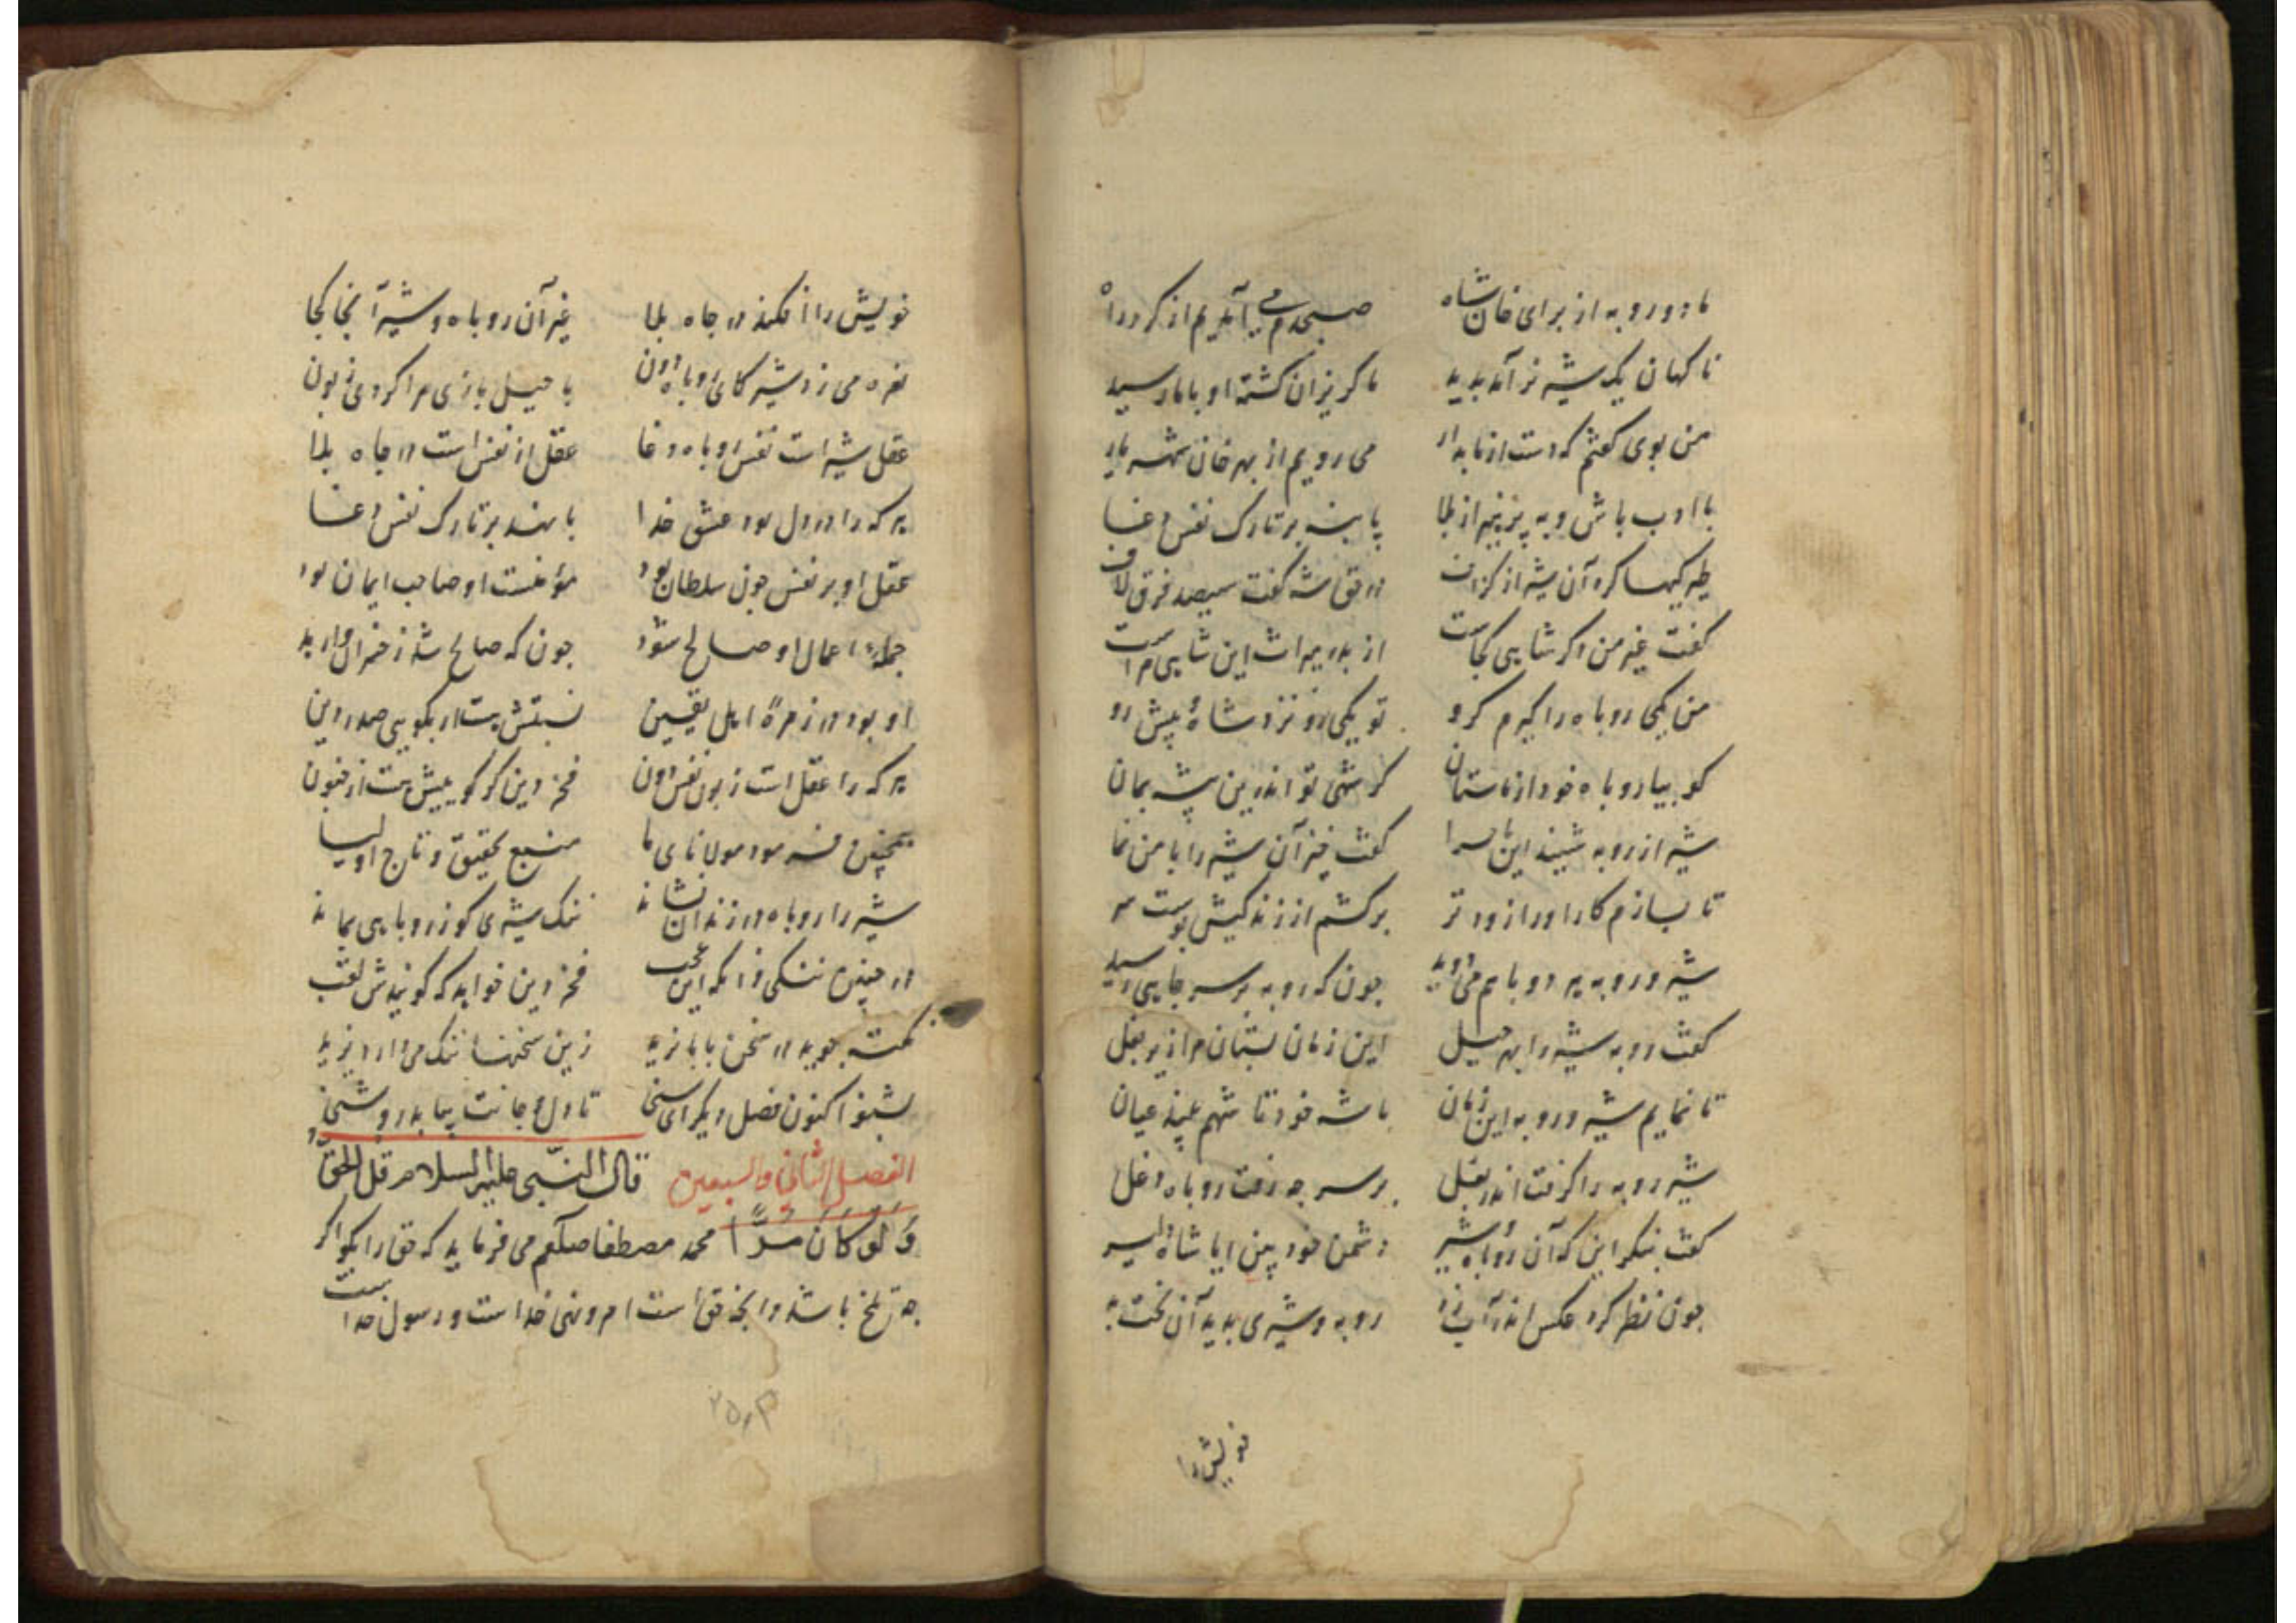 ما دو روبه از برای خان شاه صبحدم می آمدیم از گرد راه
ناکهان یک شیر نر آمد بدید ما کریزان کشته او با ما رسید
من بوی کفتم که دست از ما بدار می رویم از بهر خان شهریار
با ادب باش و بپرهیز از بلا پا بنه بر تارک نفس دغا
طیرکیها کرد آن شیر از کزاف در حق شه کفت سیصد فرق لاف
کفت غیر من اکر شاهی کجاست از پدر میراث این شاهی مراست
من یکی روباه را کیرم کرو تو یکی رو نزد شاه پیش رو
کو بیا روباه خود از ما ستان کر شهی تو اندرین بیشه بمان
شیر از روبه شنید این ماجرا کفت خیز آن شیر را با من نما
تا بسازم کار او را زودتر برکشم از زندکیش پوست سر
شیر و روبه هر دو با هم می دوید چون که روبه بر سر چاهی رسید
کفت روبه شیر را بهر حیل این زمان بستان مرا زیر بغل
تا نمایم شیر و روبه این زمان با شه خود تا شهم بیند عیان
شیر روبه را کرفت اندر بغل بر سر چه رفت روباه دغل
کفت بنکر این که آن روباه و شیر دشمن خود بین ایا شاه دلیر
چون نظر کرد عکس اندر آب زد روبه و شیری بدید آن بخت بد
خویش را
خویش را افکند در چاه بلا غیر آن روباه و شیر آنجا کجا
نعره می زد شیر کای روباه دون با حیل بازی مرا کردی زبون
عقل شیر است نفس روباه دغا عقل از نفس است در چاه بلا
هر که را در دل بود عشق خدا پا نهد بر تارک نفس دغا
عقل او بر نفس چون سلطان بود مؤمنست او صاحب ایمان بود
جملهٔ اعمال او صالح شود چون که صالح شد ز خسران وارهد
او بود در زمرهٔ اهل یقین نسبتش هست ار بکویی صدر دین
هر که را عقل است زبون نفس دون فخر دین کر کوییش هست از جنون
همچنین فرمود مولانای ما منبع تحقیق و تاج اولیا
شیر را روباه در زندان نشاند ننک شیری کو ز روباهی بماند
در چنین ننکی وانکه این عجب فخر دین خواهد که کویندش لقب
نکته جوید در سخن بابا یزید زین سخنها ننک می دارد یزید
بشنو اکنون فصل دیکر ای سخی تا دل و جانت بیابد روشنی
الفصل الثانی والسبعین قال النبی علیه السلام قل الحق
وَلَو کَانَ مُرًّا محمد مصطفا صلعم می فرماید که حق را بکو اکر
چه تلخ باشد و آنچه حق است امر و نهی خداست و رسول خداست